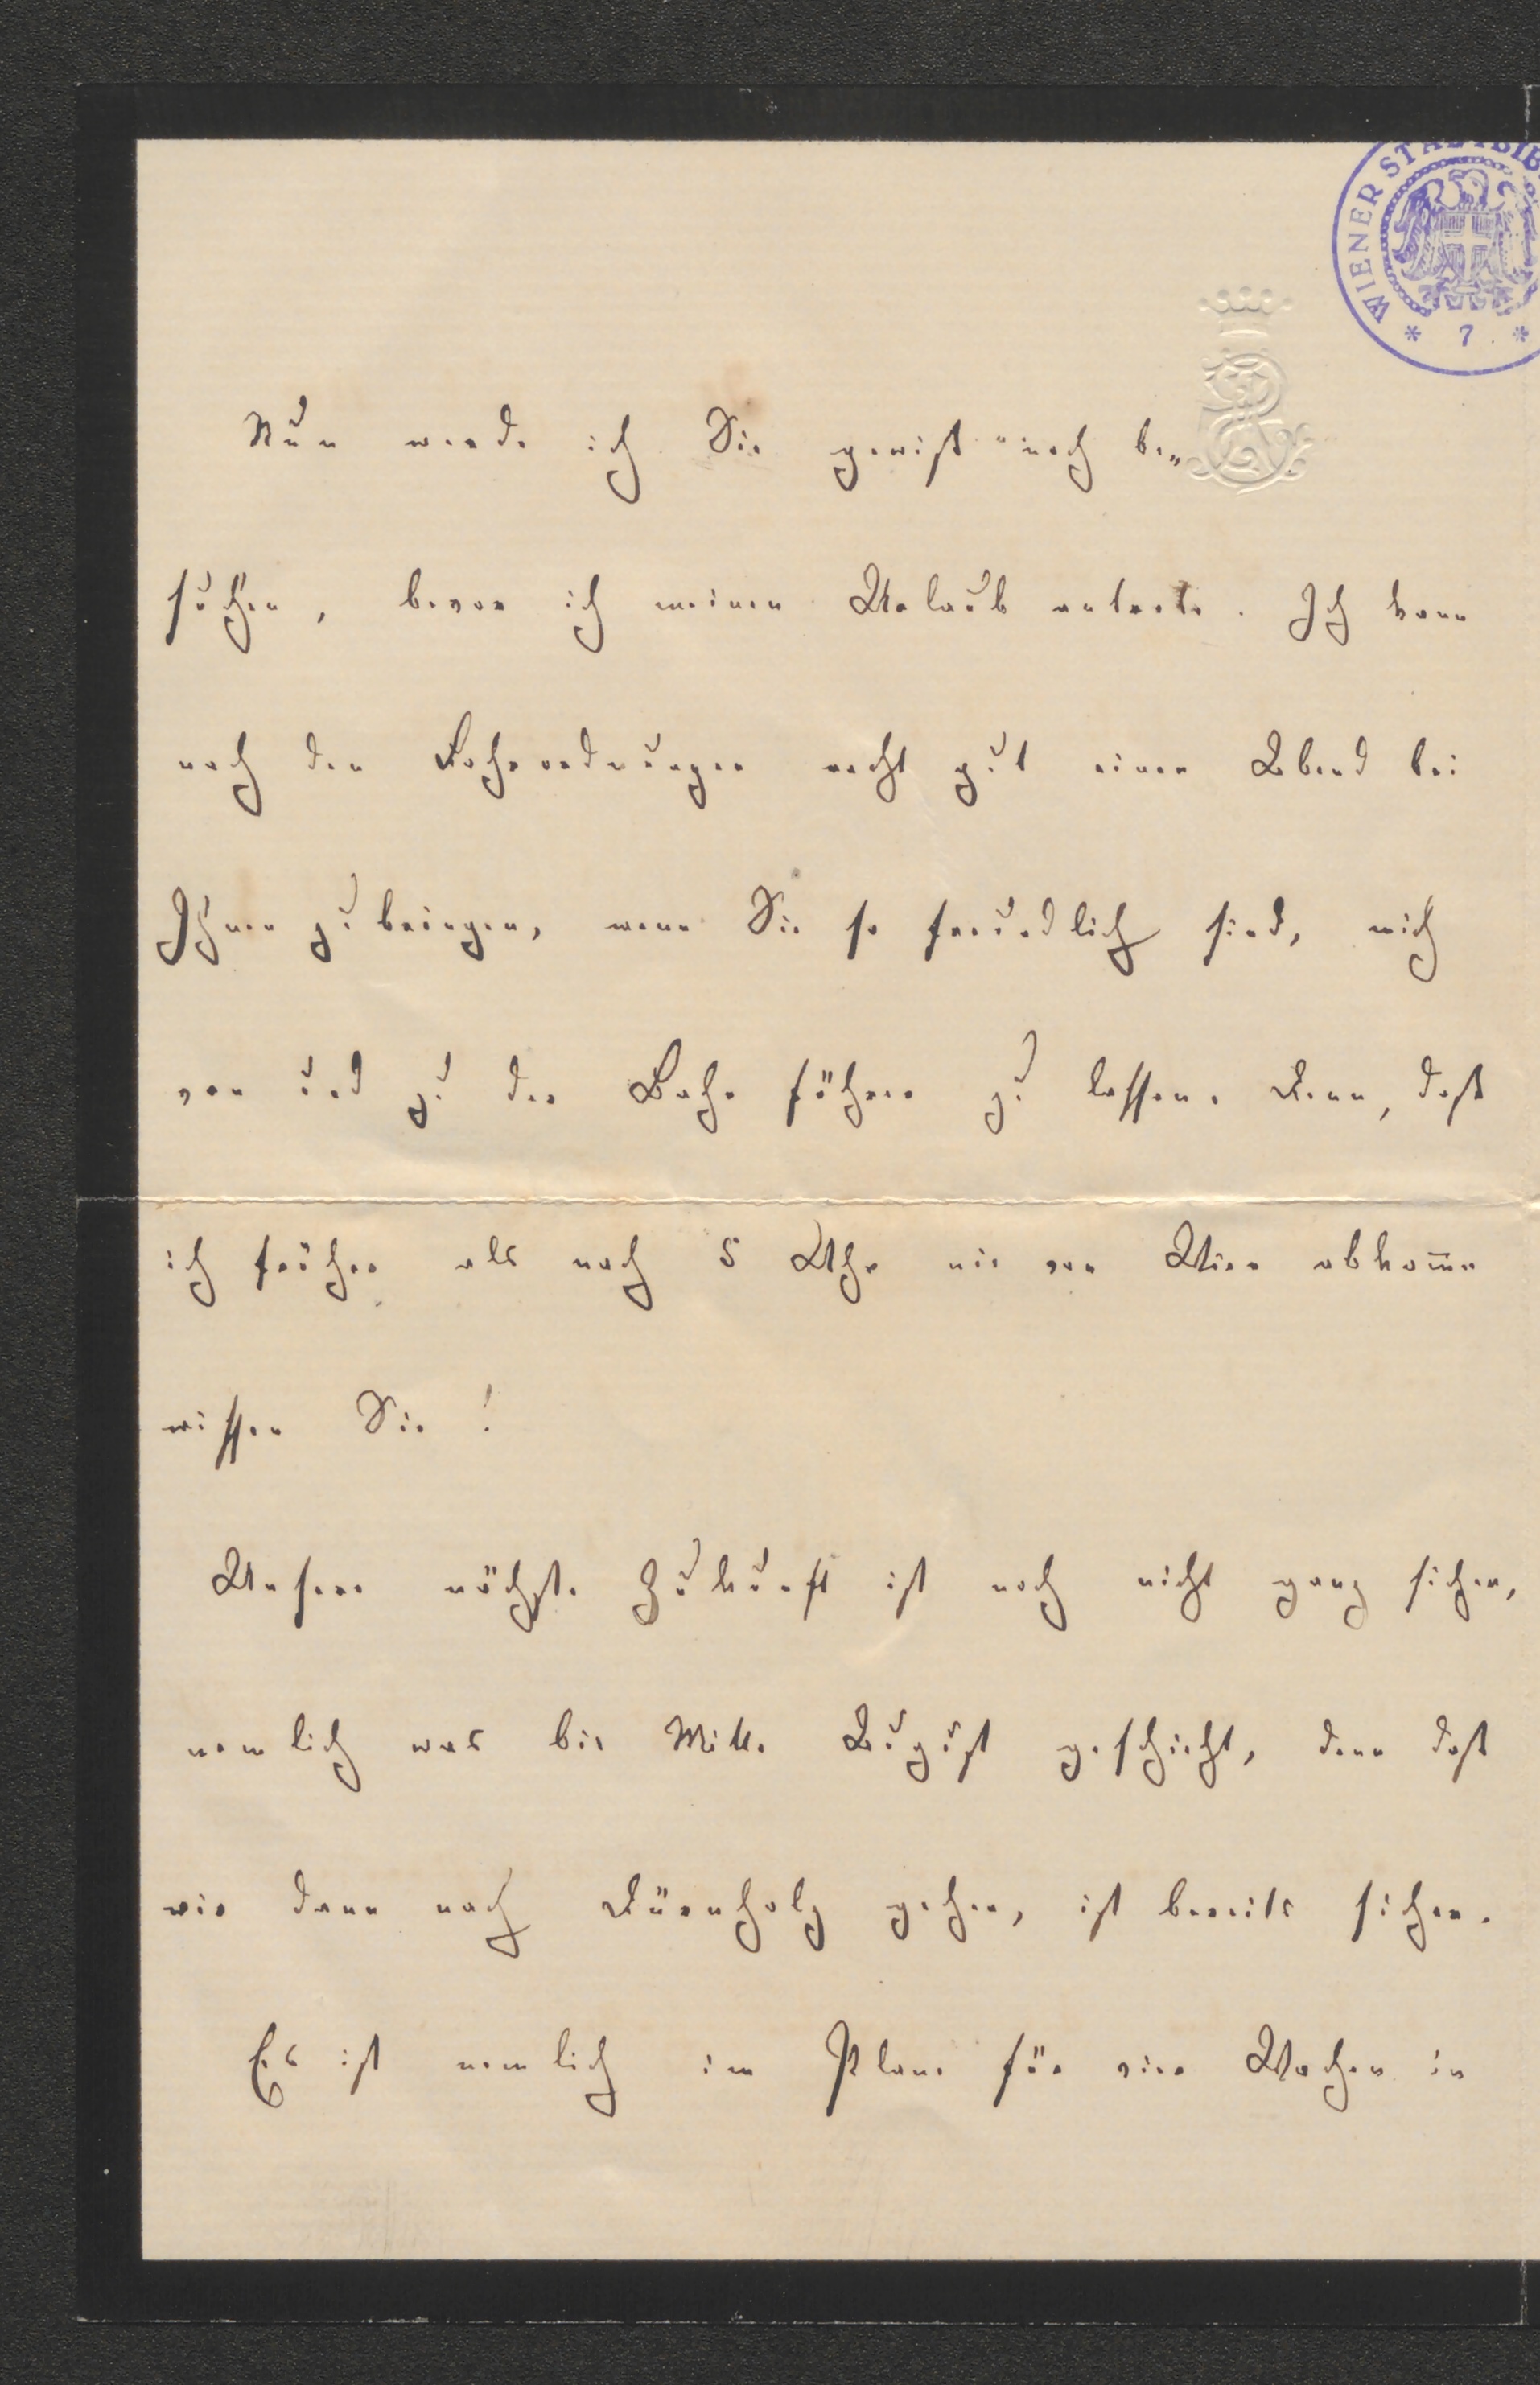 WIENER STADTBIB
* 7. *
Nun werde ich Sie gewiß noch be„
suchen, bevor ich meinen Urlaub antrete. Ich kann
nach den Bahnordnungen recht gut einen Abend bei
Ihnen zubringen, wenn Sie so freundlich sind, mich
von und zu der Bahn führen zu lassen. Denn, daß
ich früher als nach 5 Uhr nie von Wien abkom̅e
wissen Sie!
Unsere nächste Zukunft ist noch nicht ganz sicher,
nemlich was bis Mitte August geschieht, denn daß
wir dann nach Dürnholz gehen, ist bereits sicher.
Es ist nemlich im Plane für vier Wochen in